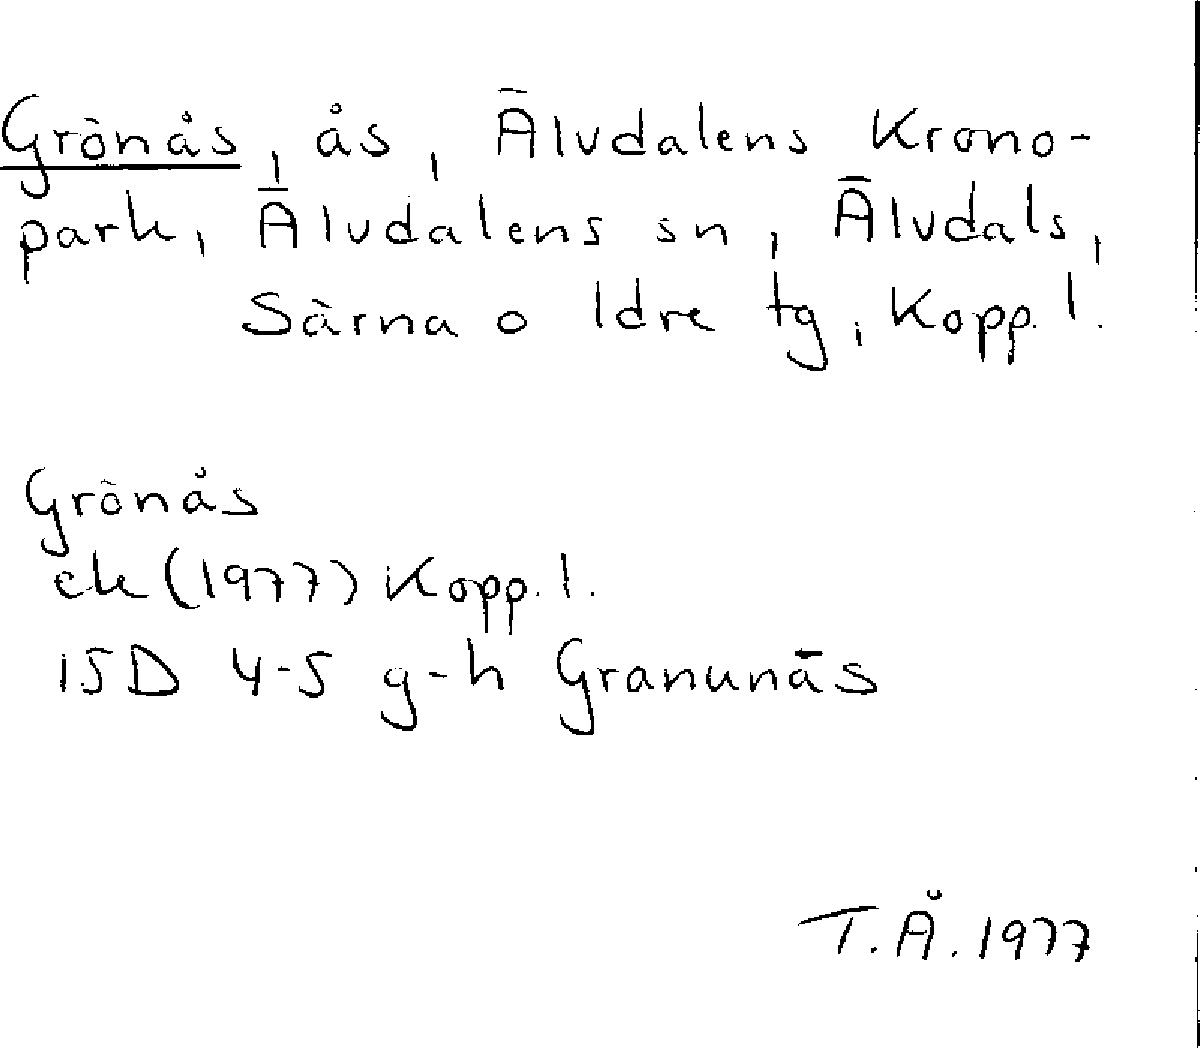 Grönås, ås, Älvdalens Krono-
park, Älvdalens sn, Älvdals,
Särna o Idre tg, Kopp. l.
Grönås
ek (1977) Kopp. l.
15D 4-5 g-h Granunäs
T.Å. 1977